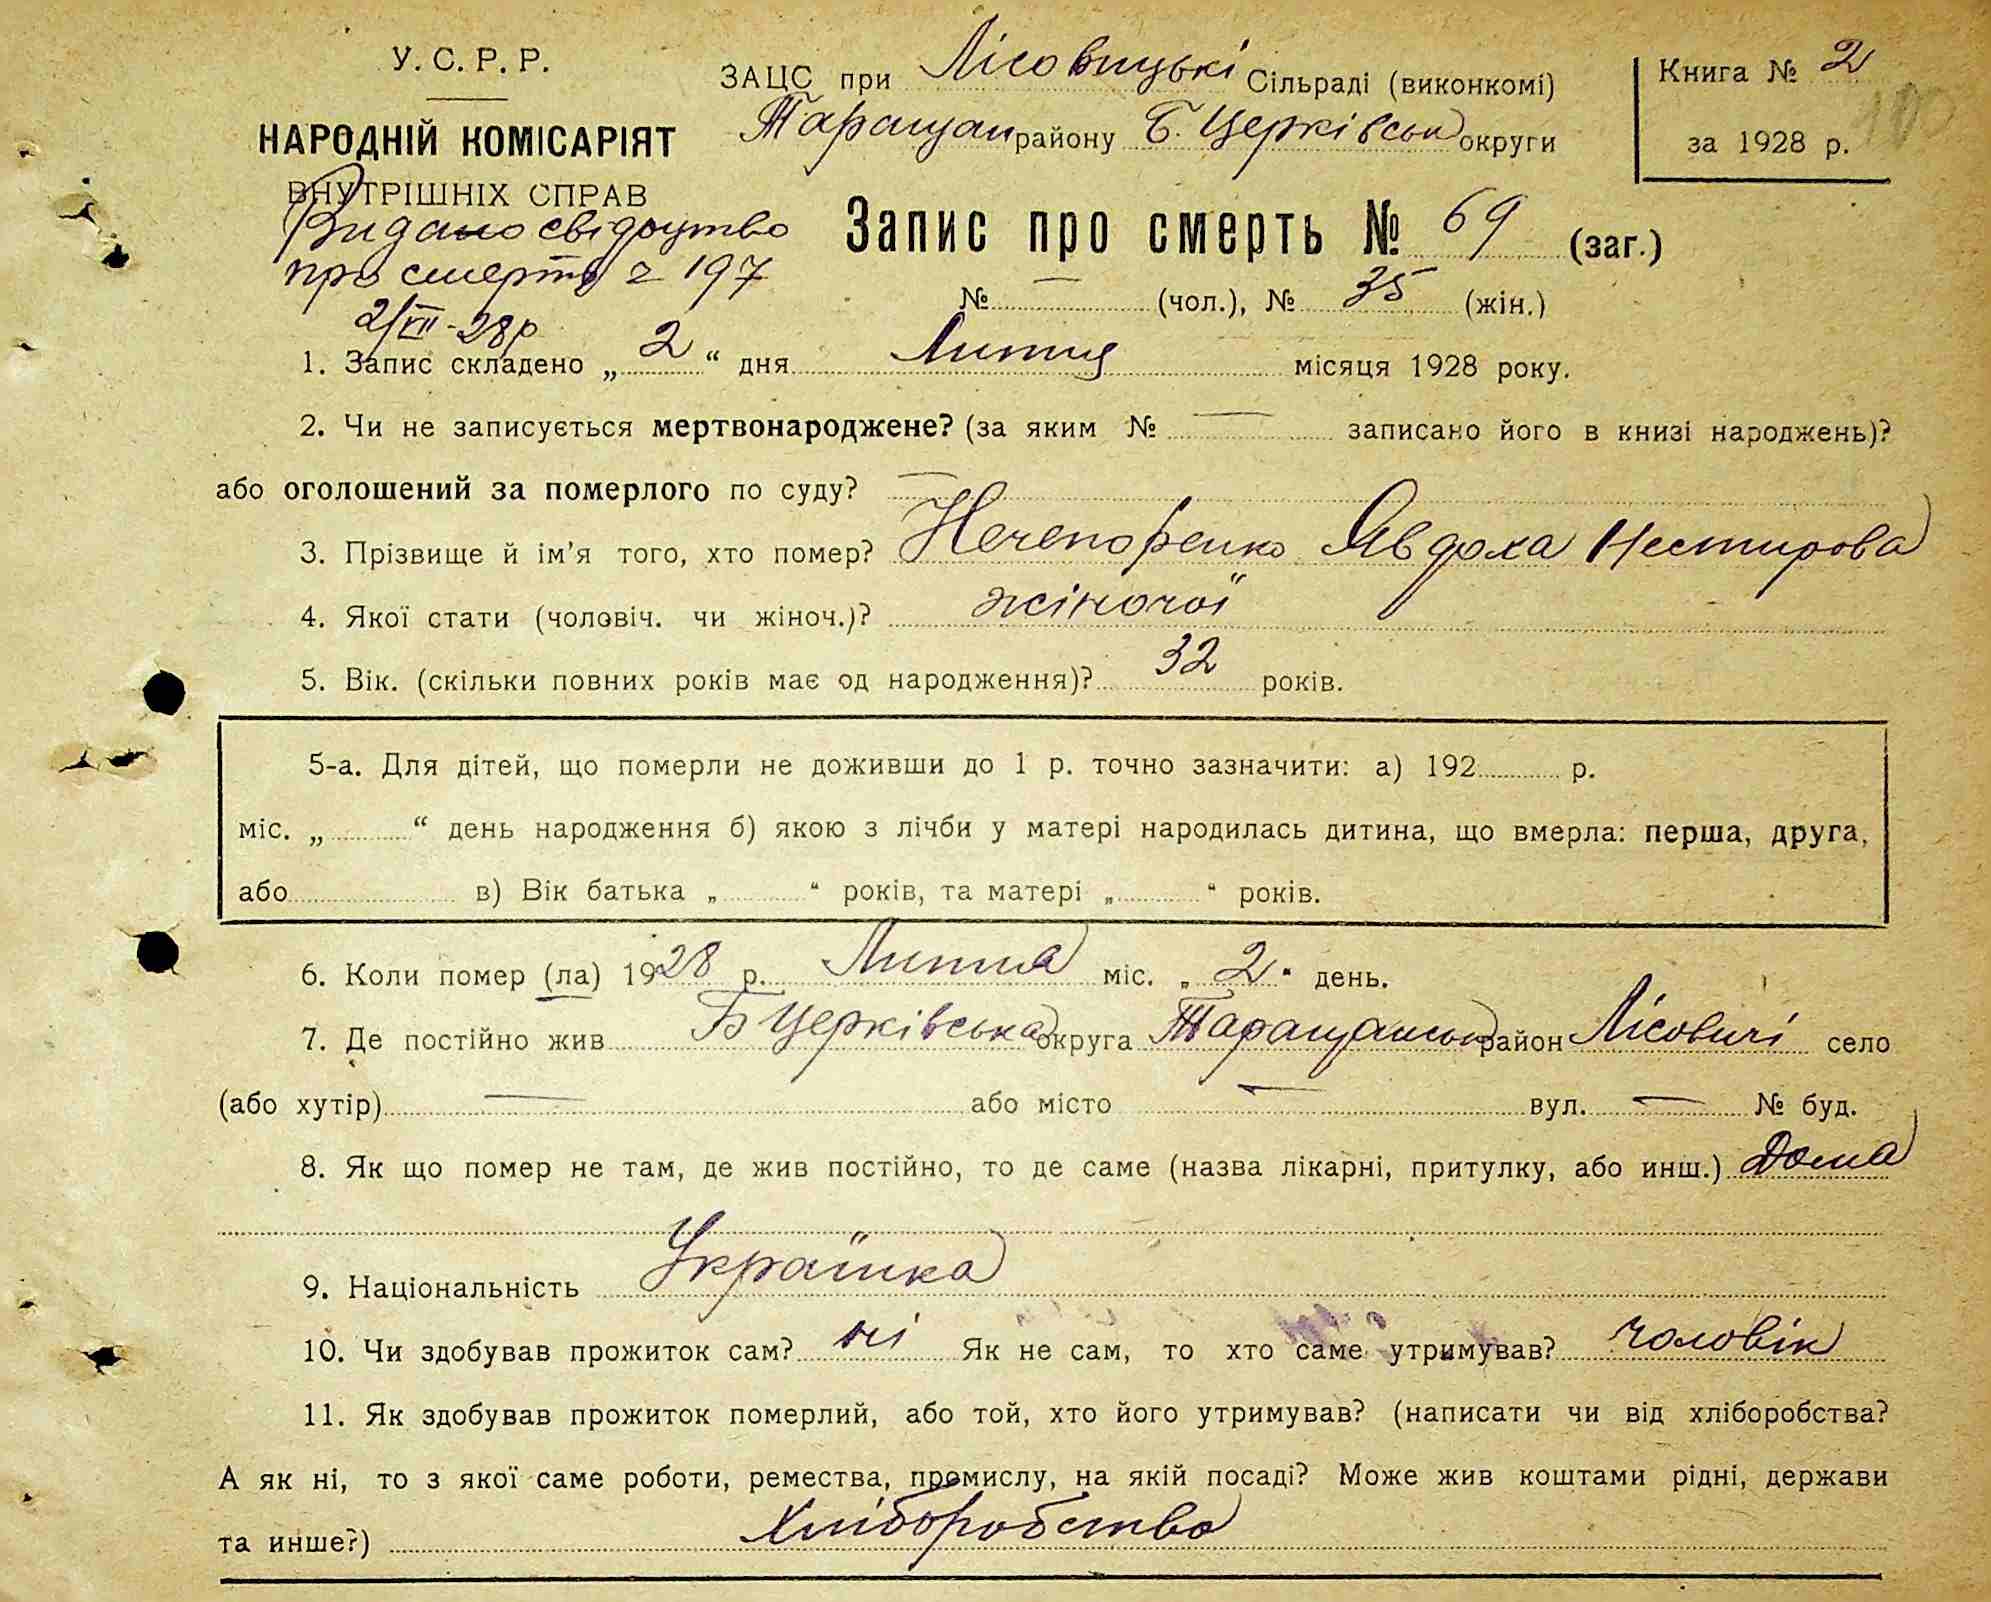 У. С. Р. Р.
НАРОДНІЙ КОМІСАРІЯТ
ВНУТРІШНІХ СПРАВ
Видано свідоцтво
про смерть 197
2/VII-28р
ЗАЦС при Лісовицькі Сільраді (виконкомі)
Таращан району Б. Церківськ округи
Книга № 2
за 1928 р.
Запис про смерть № 69 (заг.)
№ — (чол.), № 35 (жін.)
1. Запис складено „ 2 “ дня Липня місяця 1928 року.
2. Чи не записується мертвонароджене? (за яким № — записано його в книзі народжень)?
або оголошений за померлого по суду? —
3. Прізвище й ім’я того, хто помер? Нечепоренко Явдоха Нестирова
4. Якої стати (чоловіч. чи жіноч.)? жіночої
5. Вік. (скільки повних років має од народження)? 32 років.
5-а. Для дітей, що померли не доживши до 1 р. точно зазначити: а) 192 р.
міс. „ “ день народження б) якою з лічби у матері народилась дитина, що вмерла: перша, друга,
або в) Вік батька „ “ років, та матері „ “ років.
6. Коли помер (ла) 1928 р. Липня міс. „ 2 “ день.
7. Де постійно жив Б Церківська округа Таращанськ район Лісовичі село
(або хутір) — або місто — вул. — № буд.
8. Як що помер не там, де жив постійно, то де саме (назва лікарні, притулку, або инш.) Дома
9. Національність Українка
10. Чи здобував прожиток сам? ні Як не сам, то хто саме утримував? чоловік
11. Як здобував прожиток померлий, або той, хто його утримував? (написати чи від хліборобства?
А як ні, то з якої саме роботи, ремества, промислу, на якій посаді? Може жив коштами рідні, держави
та инше?) Хліборобство